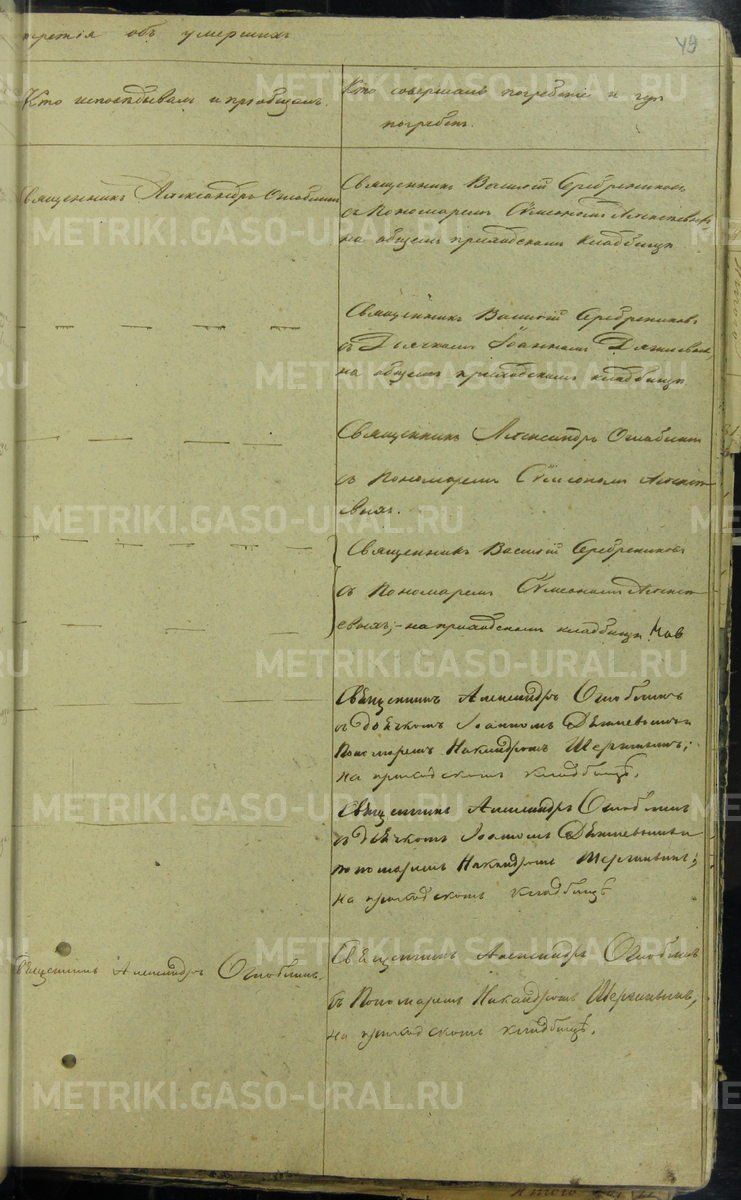 третія объ умершихъ
49
Кто исповѣдывалъ и пріобщалъ.
Кто совершалъ погребеніе и гдѣ
погребенъ.
Священникъ Александръ Оглоблинъ
Священникъ Василій Серебрениковъ
съ Пономаремъ Сѵмеономъ
на общемъ приходскомъ кладбищѣ
Священникъ Василій Серебрениковъ
съ Дьячкомъ Іоанномъ
на общемъ приходскомъ кладбищѣ
Священникъ Александръ Оглоблинъ
съ Пономаремъ Сѵмеономъ
Священникъ Василій Серебрениковъ
съ Пономаремъ Сѵмеономъ
на приходскомъ кладбищѣ
Священникъ Александръ Оглоблинъ
съ дьячкомъ Іоанномъ
Пономаремъ Никандромъ
на приходскомъ кладбищѣ.
Священникъ Александръ Оглоблинъ
съ дьячкомъ Іоанномъ
пономаремъ Никандромъ
на приходскомъ кладбищѣ
Священникъ Александръ Оглоблинъ.
Священникъ Александръ Оглоблинъ
съ Пономаремъ Никандромъ
на приходскомъ кладбищѣ.
METRIKI.GASO-URAL.RU